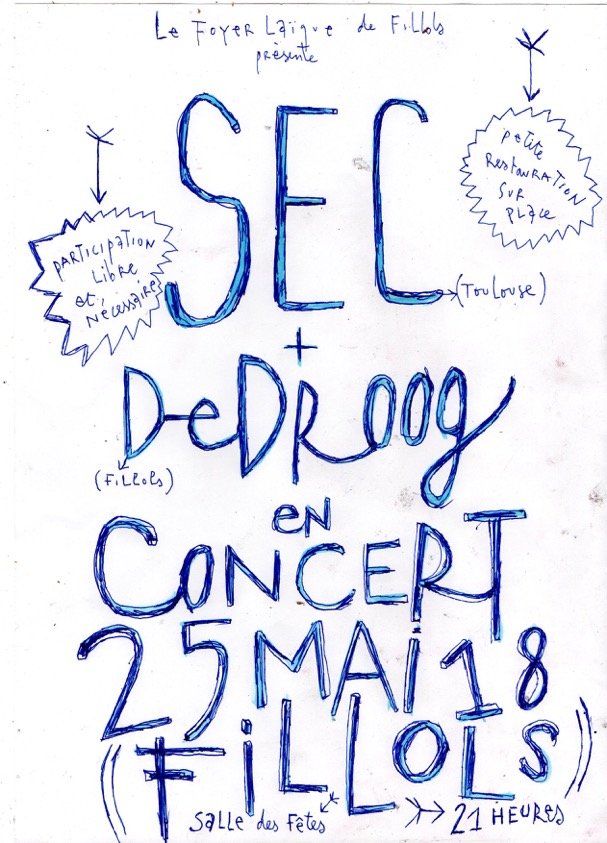 Le Foyer Laïque de Fillols
présente
SEC
petite
Restauration
sur
place
participation
Libre
et
Nécessaire
(Toulouse)
+
DeDRoog
(Fillols)
eN
CONCERT
25 MAi 18
(FiLLOLS)
Salle des Fêtes
21 HEURES